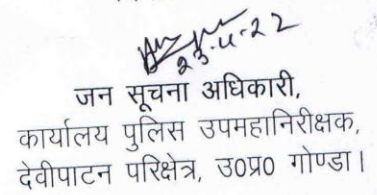 23-11-22
जन सूचना अधिकारी,
कार्यालय पुलिस उपमहानिरीक्षक,
देवीपाटन परिक्षेत्र, उ0प्र0 गोण्डा।